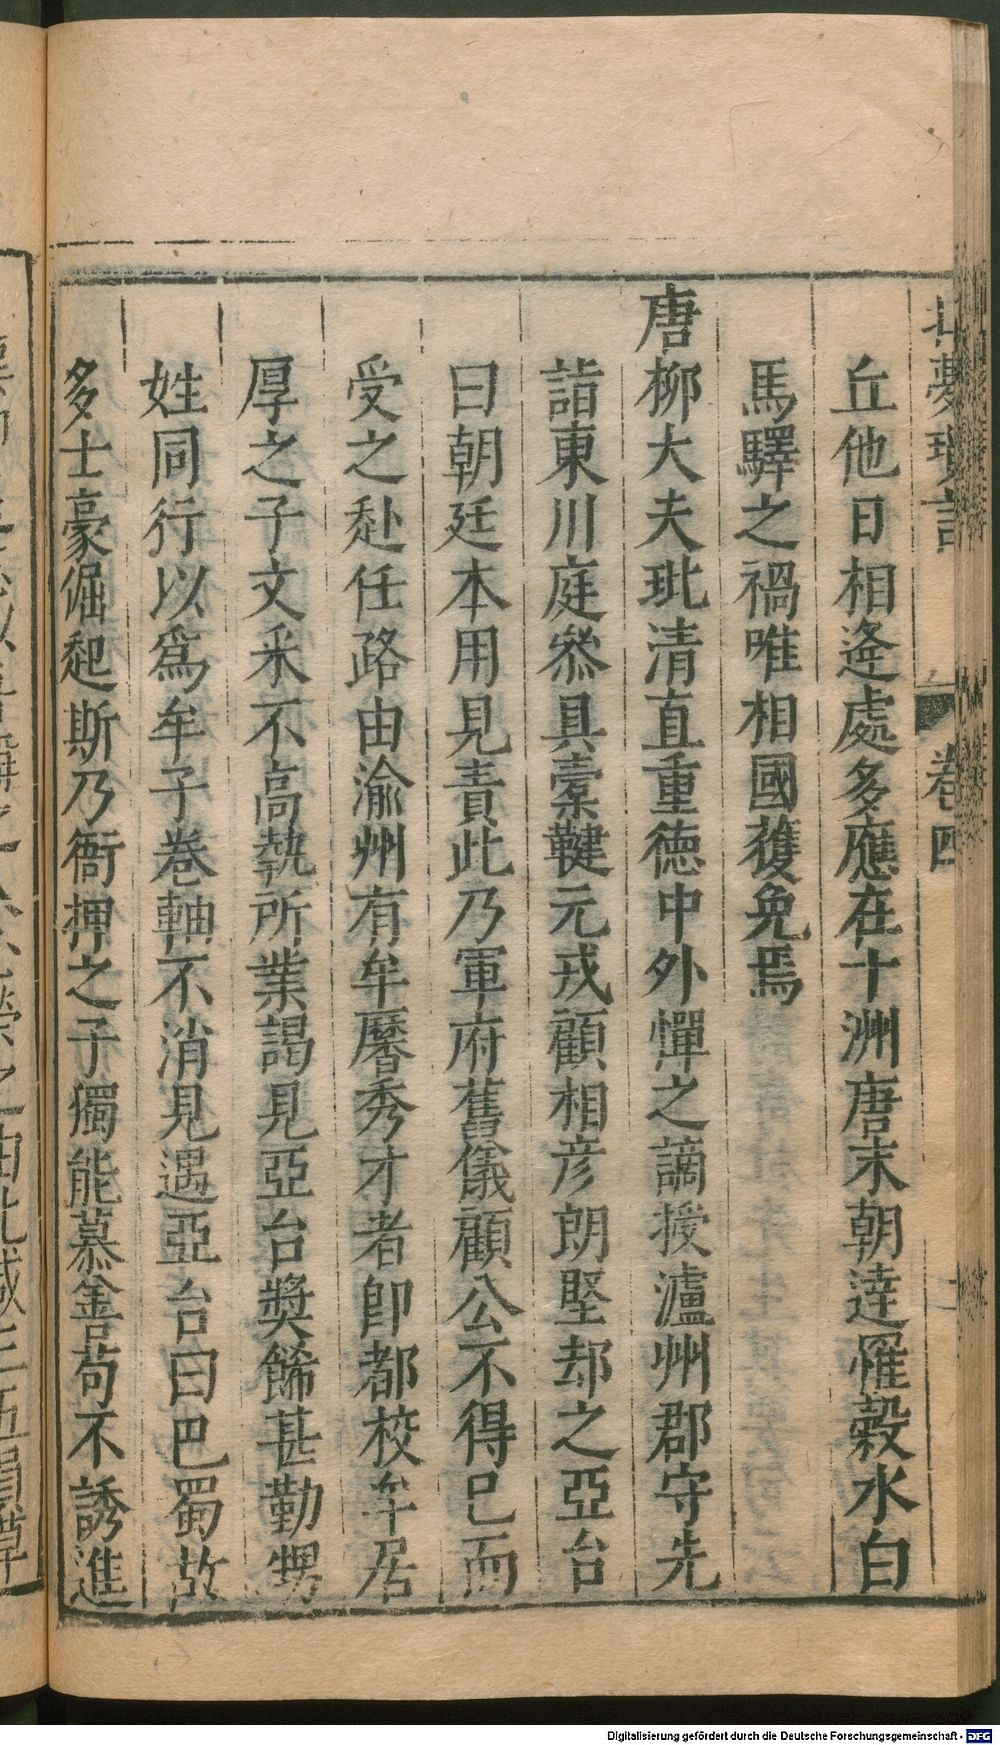 夢瑣言
卷四
丘他日相逄處多應在十洲唐末朝逹罹榖水白
馬驛之禍唯相國獲免焉
唐柳大夫玭清直重徳中外憚之謫授瀘州郡守先
詣東川庭叅具櫜鞬元戎顧相彦朗堅却之亞台
曰朝廷本用見責此乃軍府舊儀顧公不得已而
受之赴任路由渝州有牟𪐎秀才者卽都校牟居
厚之子文釆不高執所業謁見亞台奬餙甚勤甥
姓同行以爲牟子卷軸不消見遇亞台曰巴蜀故
多士豪倔起斯乃衙押之子獨能慕善苟不誘進
Digitalisierung gefördert durch die Deutsche Forschungsgemeinschaft - DFG